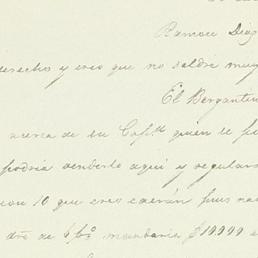 Ramon Diaz
derecho y creo que no saldrá muy
El Bergantin
acerca de su Capn. quien le
podria venderlo aqui y regular
10 que creo caerán pues
dro. de mandaria $19999